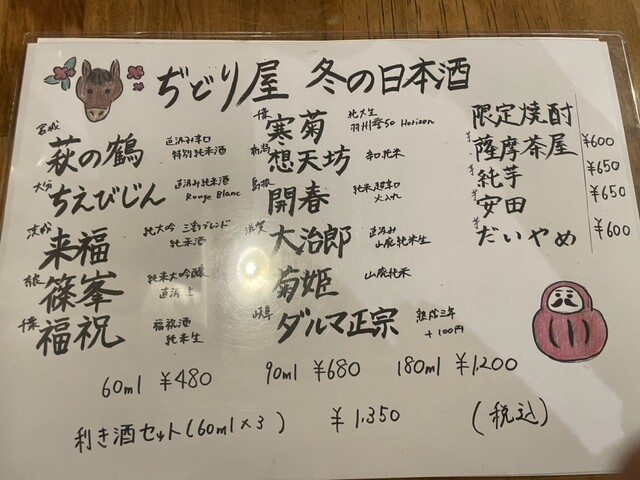 ぢどり屋 冬の日本酒
宮城 萩の鶴 直汲み辛口 特別純米酒
大分 ちえびじん 直汲み純米酒 Rouge Blanc
茨城 来福 純大吟 三割ブレンド 純米酒
篠峯 純米大吟醸
千葉 福祝 福祝酒 純米生
千葉 寒菊 純大生 羽州誉50 Horizon
新潟 想天坊 辛口純米
島根 開春 純米超辛口 火入れ
滋賀 大治郎 直汲み 山廃純米生
菊姫 山廃純米
岐阜 ダルマ正宗 熟成三年 +100円
限定焼酎
薩摩茶屋 ¥600
純芋 ¥650
安田 ¥650
だいやめ ¥600
60ml ¥480 90ml ¥680 180ml ¥1.200
利き酒セット(60ml×3) ¥1.350 (税込)